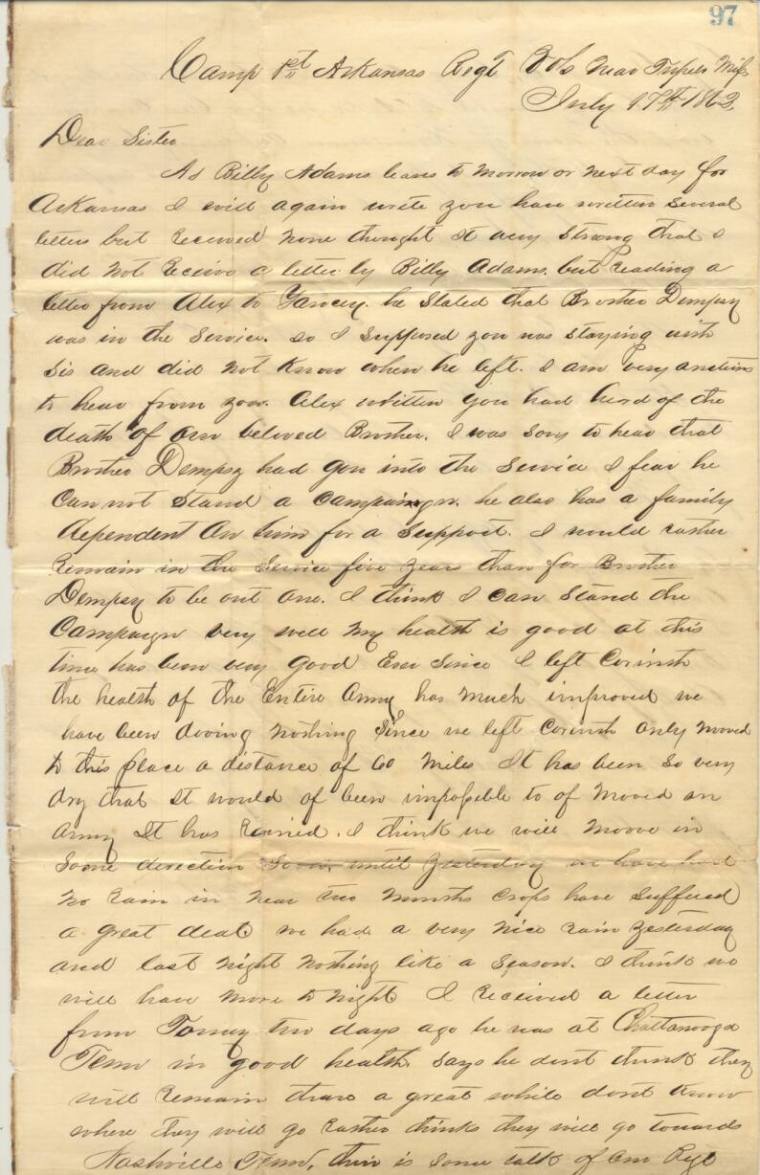 97
Camp 1st Arkansas Regt Vols Near Tupelo Miss
July 17th 1862
Dear Sister
As Billy Adams leaves to morrow or next day for
Arkansas I will again write you have written several
letters but received none thought it very strang that I
did not receive a letter by Billy Adams. but reading a
letter from Alex to he stated that Brother Dempsy
was in the service. so I supposed you was staying with
Sis and did not know when he left. I am very anxious
to hear from you. Alex written you had herd of the
death of our beloved Brother. I was sory to hear that
Brother Dempsy had gon into the service I fear he
can not stand a campaign. he also has a family
dependent on him for a support. I would rather
remain in the service five years than for Brother
Dempsy to be out one. I think I can stand the
Campaign very well my health is good at this
time has been very good ever since I left Corinth
the health of the Entire Army has much improved we
have been dooing nothing since we left Corinth only moved
to this place a distance of 60 miles It has been so very
dry that it would of been impossible to of moved an
army It has rained. I think we will moove in
some direction soon. until yesterday we have had
no rain in near two months crops have suffered
a great deal we had a very nice rain yesterday
and last night nothing like a season. I think we
will have more to night I received a letter
from Tomy two days ago he was at Chattanooga
Tenn in good health. says he dont think they
will remain thare a great while dont know
where they will go rather thinks they will go towards
Nashville Tenn, thir is some talk of our Regt